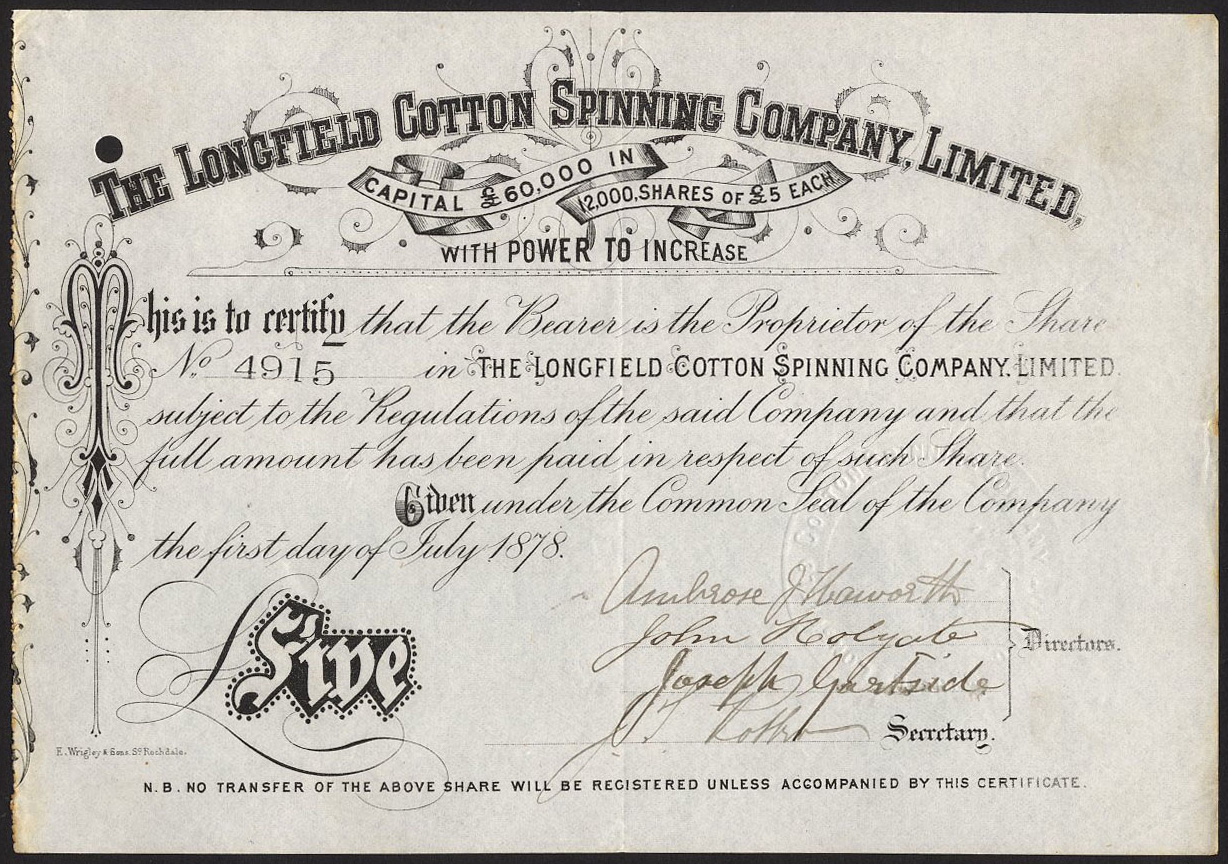 THE LONGFIELD COTTON SPINNING COMPANY, LIMITED,
CAPITAL £60,000 IN
12,000, SHARES OF £5 EACH
WITH POWER TO INCREASE
This is to certify that the Bearer is the Proprietor of the Share
No. 4915 in THE LONGFIELD COTTON SPINNING COMPANY. LIMITED.
subject to the Regulations of the said Company and that the
full amount has been paid in respect of such Share.
Given under the Common Seal of the Company
the first day of July 1878.
Ambrose J Haworth
John Holgate
Directors.
Joseph Gartside
£Five
Secretary.
E. Wrigley & Sons. Sc. Rochdale.
N.B. NO TRANSFER OF THE ABOVE SHARE WILL BE REGISTERED UNLESS ACCOMPANIED BY THIS CERTIFICATE.